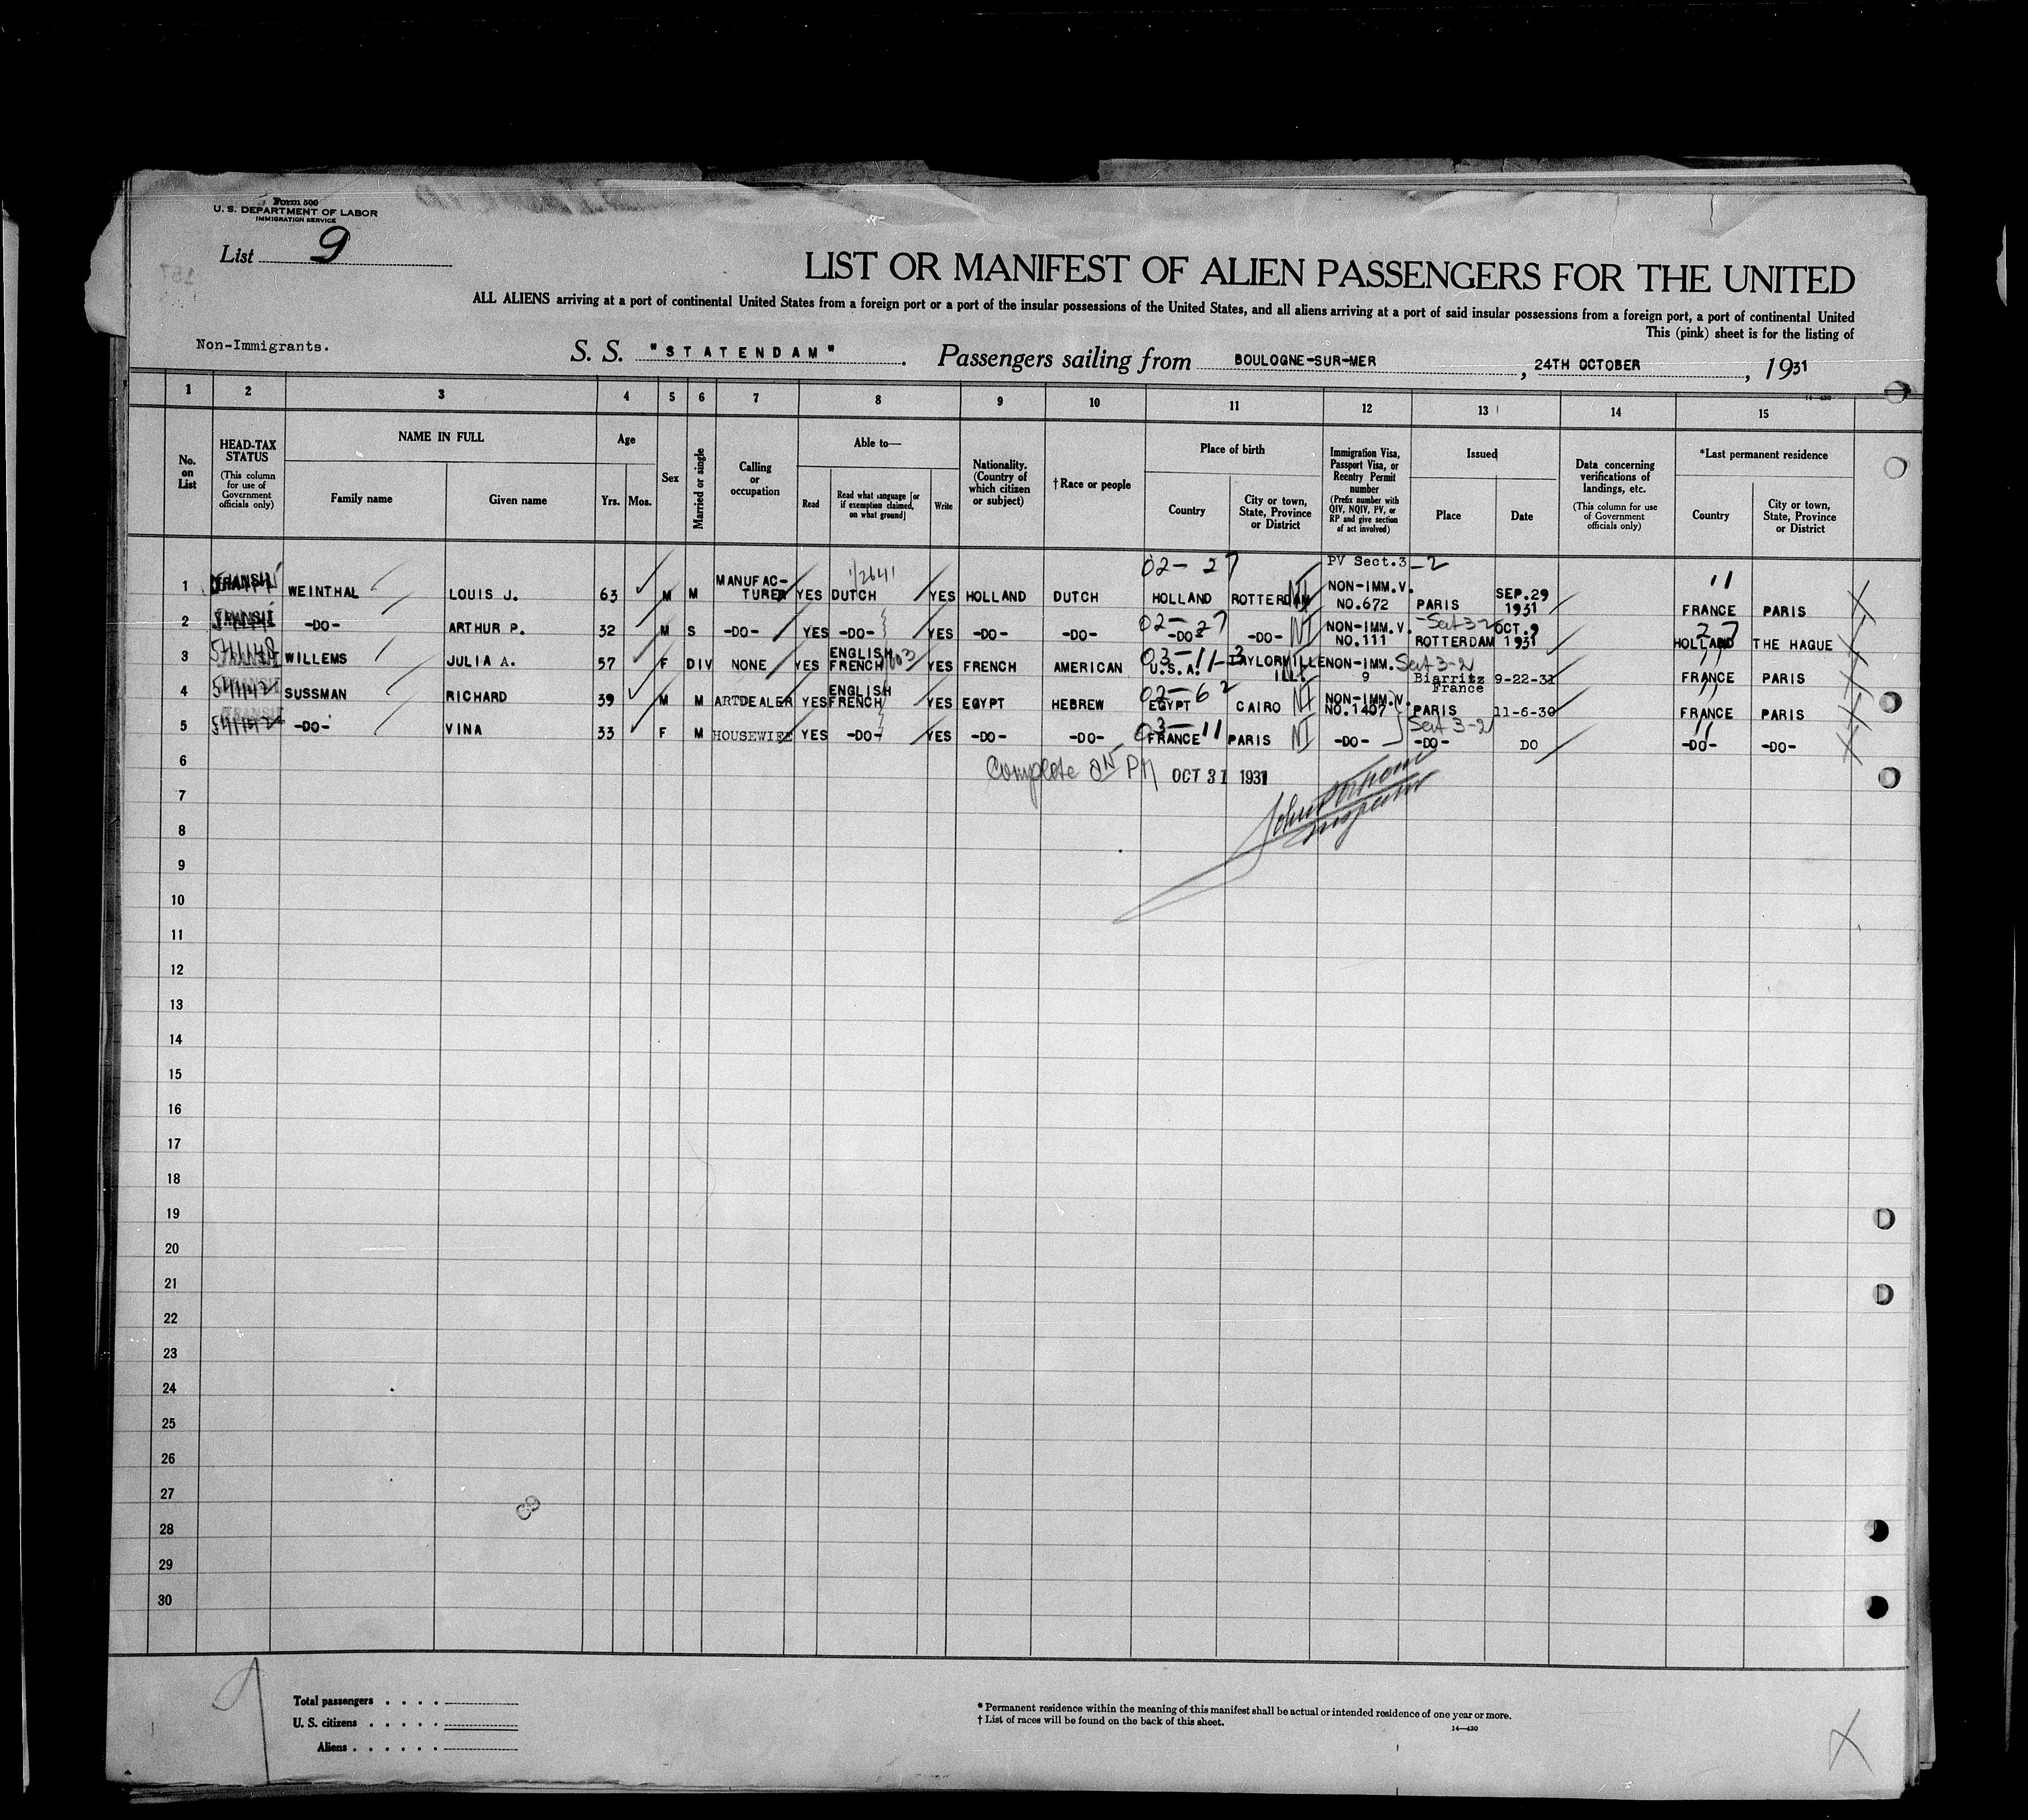 Form 500
U. S. DEPARTMENT OF LABOR
IMMIGRATION SERVICE
List 9
LIST OR MANIFEST OF ALIEN PASSENGERS FOR THE UNITED
ALL ALIENS arriving at a port of continental United States from a foreign port or a port of the insular possessions of the United States, and all aliens arriving at a port of said insular possessions from a foreign port, a port of continental United
This (pink) sheet is for the listing of
Non-Immigrants.
S. S. "STATENDAM" . Passengers sailing from BOULOGNE-SUR-MER , 24TH OCTOBER , 1931
1 2 3 4 5 6 7 8 9 10 11 12 13 14 15
No. on List
HEAD-TAX STATUS (This column for use of Government officials only)
NAME IN FULL
Family name
Given name
Age
Yrs. Mos.
Sex
Married or single
Calling or occupation
Able to—
Read
Read what language [or if exemption claimed, on what ground]
Write
Nationality. (Country of which citizen or subject)
†Race or people
Place of birth
Country
City or town, State, Province or District
Immigration Visa, Passport Visa, or Reentry Permit number (Prefix number with QIV, NQIV, PV, or RP and give section of act involved)
Issued
Place
Date
Data concerning verifications of landings, etc. (This column for use of Government officials only)
*Last permanent residence
Country
City or town, State, Province or District
02- 27 PV Sect.3-2 11
1 TRANSIT WEINTHAL LOUIS J. 63 M M MANUFACTURER YES DUTCH YES HOLLAND DUTCH HOLLAND ROTTERDAM NI NON-IMM.V. NO.672 PARIS SEP.29 1931 FRANCE PARIS
02-27 Sect 3-2 27
2 TRANSIT -DO- ARTHUR P. 32 M S -DO- YES -DO- YES -DO- -DO- -DO- -DO- NI NON-IMM.V. NO.111 ROTTERDAM OCT.9 1931 HOLLAND THE HAGUE
03-11-3 Sect 3-2 11
3 WILLEMS JULIA A. 57 F DIV NONE YES ENGLISH FRENCH YES FRENCH AMERICAN U.S.A. TAYLORVILLE ILL. NON-IMM. 9 Biarritz France 9-22-31 FRANCE PARIS
02-62 11
4 SUSSMAN RICHARD 39 M M ARTDEALER YES ENGLISH FRENCH YES EGYPT HEBREW EGYPT CAIRO NI NON-IMM.V. NO.1407 PARIS 11-6-30 FRANCE PARIS
03-11 Sect 3-2 11
5 TRANSIT -DO- VINA 33 F M HOUSEWIFE YES -DO- YES -DO- -DO- FRANCE PARIS NI -DO- -DO- DO -DO- -DO-
6 Complete OCT 31 1931
7
Inspector
8
9
10
11
12
13
14
15
16
17
18
19
20
21
22
23
24
25
26
27
28
29
30
Total passengers . . . .
U. S. citizens . . . . .
Aliens . . . . . .
* Permanent residence within the meaning of this manifest shall be actual or intended residence of one year or more.
† List of races will be found on the back of this sheet.
14—430